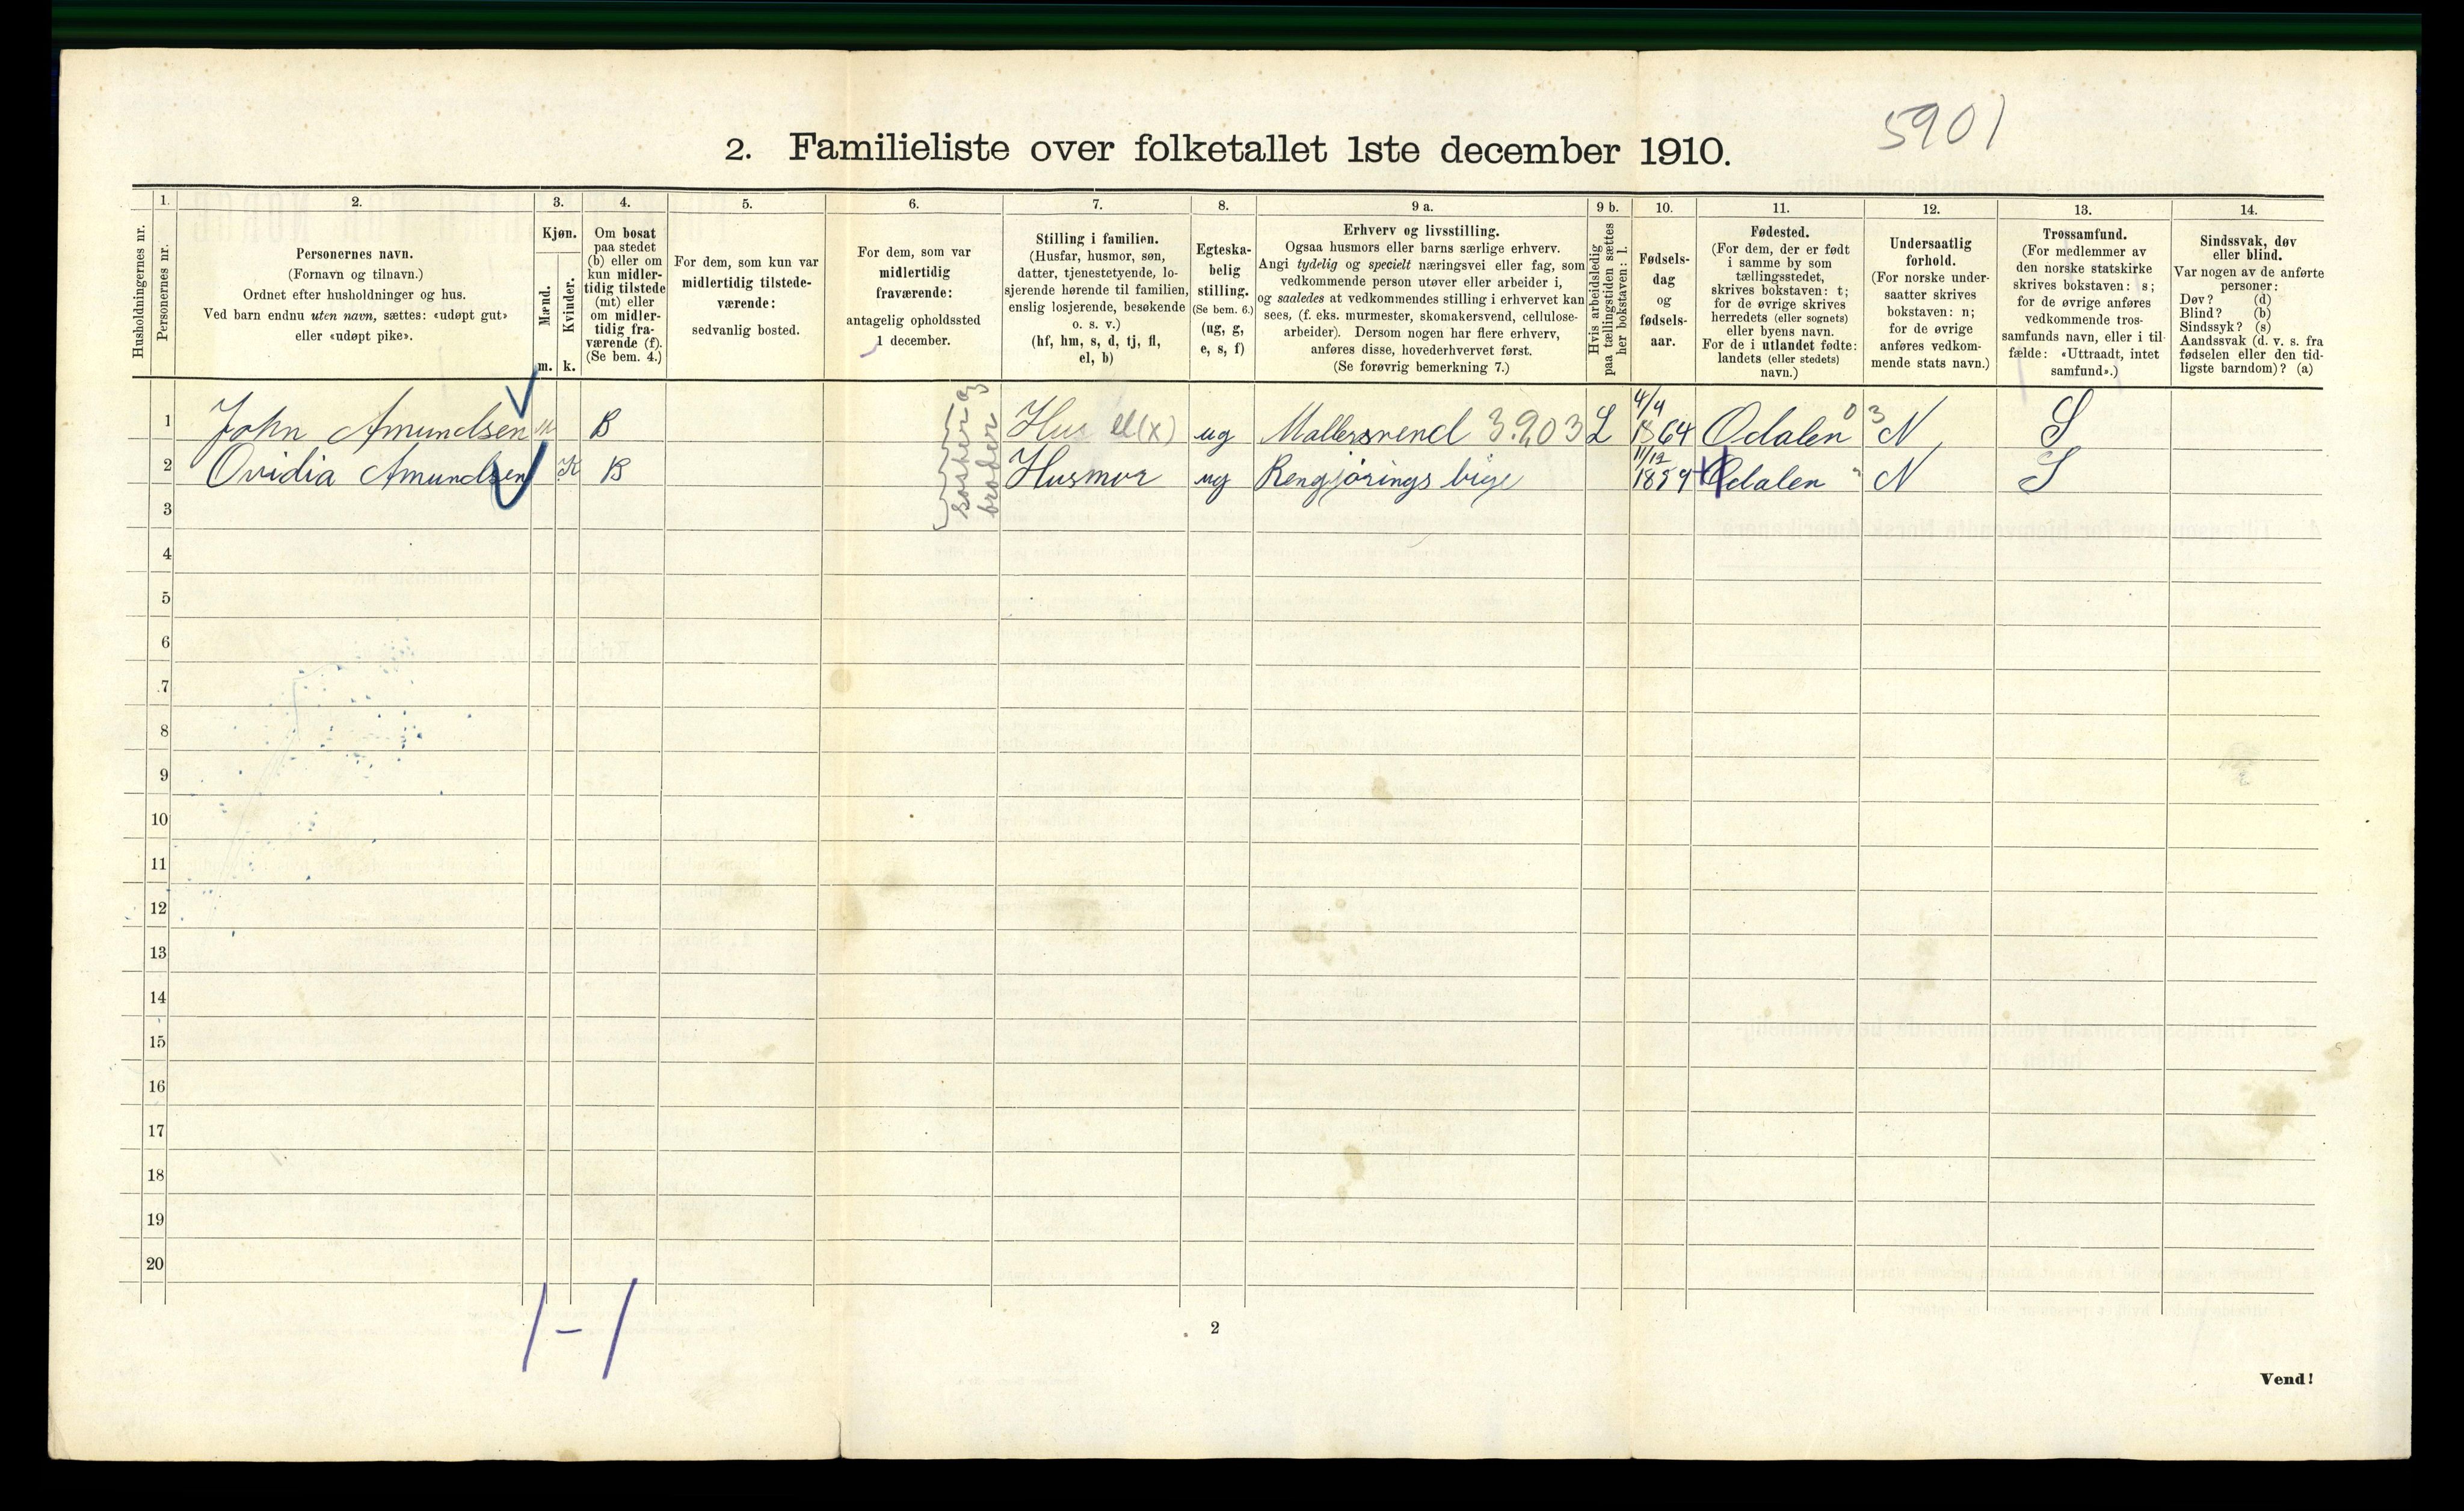 5901
2. Familieliste over folketallet 1ste december 1910.
1. 2. 3. 4. 5. 6. 7. 8. 9 a. 9 b. 10. 11. 12. 13. 14.
Husholdningernes nr.
Personernes nr.
Personernes navn.
(Fornavn og tilnavn.)
Ordnet efter husholdninger og hus.
Ved barn endnu uten navn, sættes: «udøpt gut»
eller «udøpt pike».
Kjøn.
Mænd.
Kvinder.
m. k.
Om bosat
paa stedet
(b) eller om
kun midler-
tidig tilstede
(mt) eller
om midler-
tidig fra-
værende (f).
(Se bem. 4.)
For dem, som kun var
midlertidig tilstede-
værende:
sedvanlig bosted.
For dem, som var
midlertidig
fraværende:
antagelig opholdssted
1 december.
Stilling i familien.
(Husfar, husmor, søn,
datter, tjenestetyende, lo-
sjerende hørende til familien,
enslig losjerende, besøkende
o. s. v.)
(hf, hm, s, d, tj, fl,
el, b)
Egteska-
belig
stilling.
(Se bem. 6.)
(ug, g,
e, s, f)
Erhverv og livsstilling.
Ogsaa husmors eller barns særlige erhverv.
Angi tydelig og specielt næringsvei eller fag, som
vedkommende person utøver eller arbeider i,
og saaledes at vedkommendes stilling i erhvervet kan
sees, (f. eks. murmester, skomakersvend, cellulose-
arbeider). Dersom nogen har flere erhverv,
anføres disse, hovederhvervet først.
(Se forøvrig bemerkning 7.)
Hvis arbeidsledig
paa tællingstiden sættes
her bokstaven: l.
Fødsels-
dag
og
fødsels-
aar.
Fødested.
(For dem, der er født
i samme by som
tællingsstedet,
skrives bokstaven: t;
for de øvrige skrives
herredets (eller sognets)
eller byens navn.
For de i utlandet fødte:
landets (eller stedets)
navn.)
Undersaatlig
forhold.
(For norske under-
saatter skrives
bokstaven: n;
for de øvrige
anføres vedkom-
mende stats navn.)
Trossamfund.
(For medlemmer av
den norske statskirke
skrives bokstaven: s;
for de øvrige anføres
vedkommende tros-
samfunds navn, eller i til-
fælde: «Uttraadt, intet
samfund».)
Sindssvak, døv
eller blind.
Var nogen av de anførte
personer:
Døv? (d)
Blind? (b)
Sindssyk? (s)
Aandssvak (d. v. s. fra
fødselen eller den tid-
ligste barndom)? (a)
1 John Amundsen m B Hus el(x) ug Mallersvend 3.903 L 4/4 1864 Odalen 03 N S
2 Ovidia Amundsen K B Husmor ug Rengjörings bige 11/12 1859 Odalen " N S
søster og
broder
3
4
5
6
7
8
9
10
11
12
13
14
15
16
17
18
19
20
1 - 1
2
Vend!